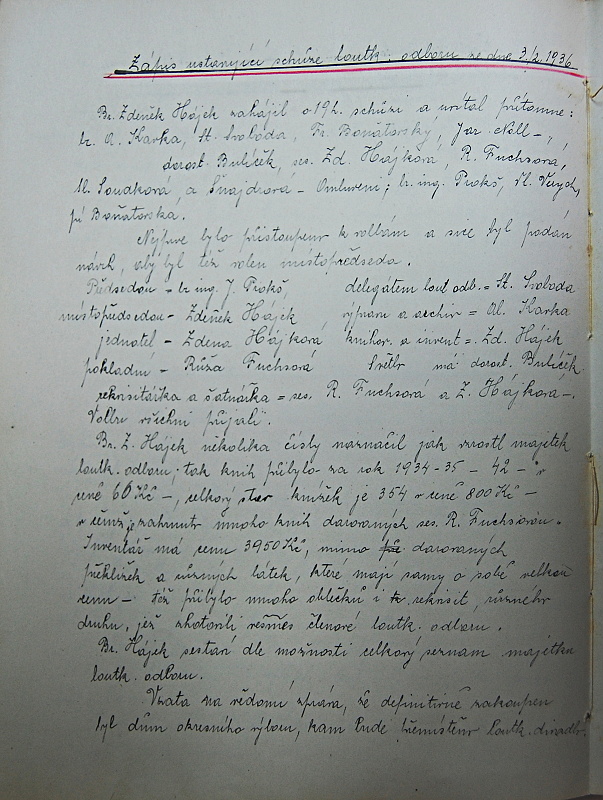 Zápis ustavující schůze loutk. odboru ze dne 3/2 1936
Br. Zdeněk Hájek zahájil o 19h. schůzi a uvítal přítomné:
br. A. Karka, St. Svoboda, Fr. Boňatovský, Jar. Noll -,
dorost. Bulíček, ses. Zd. Hájková, R. Fuchsová,
M. Soudková, a Šnajdrová - Omluveni; br. ing. Prokš,
pí Boňatovska.
Nejprve bylo přistoupeno k volbám a sice byl podán
návrh, aby byl též volen místopředseda.
Předsedou - br ing. J. Prokš, delegátem lout. odb. = St. Svoboda
místopředsedou - Zdeněk Hájek výpravu a archiv = Al. Karka
jednatel - Zdena Hájková knihov. a invent =. Zd. Hájek
pokladnu - Růža Fuchsová Světlo má dorost. Bulíček
rekvisitářka a šatnářka = ses. R. Fuchsová a Z. Hájková -.
Volbu všichni přijali.
Br. Z. Hájek několika čísly naznačil jak vzrostl majetek
loutk. odboru; tak knih přibylo za rok 1934-35 - 42 - v
ceně 60 Kč -, celkový stav knížek je 354 v ceně 800 Kč -
v čemž je zahrnuto mnoho knih darovaných ses. R. Fuchsovou.
Inventář má cenu 3950 Kč, mimo darovaných
překližek a různých látek, které mají samy o sobě velkou
cenu - též přibylo mnoho oblečků i rekvisit, různého
druhu, jež zhotovili vesměs členové loutk. odboru.
Br. Hájek sestaví dle možnosti celkový seznam majetku
loutk. odboru.
Vzata na vědomí zpráva, že definitivně zakoupen
byl dům okresního výboru, kam bude přemístěno loutk. divadlo.